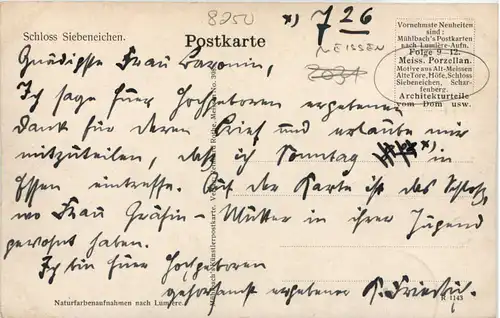 8250
*) 7 26
Schloss Siebeneichen.
Postkarte
MEISSEN
2031
Vornehmste Neuheiten
sind:
Mühlbach's Postkarten
nach Lumière-Aufn.
Folge 9–12.
Meiss. Porzellan.
Motive aus Alt-Meissen
Alte Tore, Höfe, Schloss
Siebeneichen, Schar-
fenberg.
Architekturteile
vom Dom usw.
Gnädigste Frau Baronin,
Ich sage Euer Hochgeboren ergebenen
Dank für deren Brief und erlaube mir
mitzuteilen, daß ich Sonntag *) in
Essen eintreffe. Auf der Karte ist das Schloß,
wo Frau Gräfin-Mutter in ihrer Jugend
gewohnt haben.
Ich bin Euer Hochgeboren
gehorsamst ergebener K. Friedrich.
Naturfarbenaufnahmen nach Lumière.
R 1143